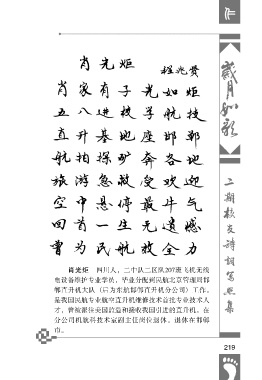 作
岁月如歌
二期校友诗词写照集
肖光炬
程兆贵
肖家有子光如炬
五八进校学航技
直升基地座邯郸
航拍探矿奔各地
旅游急救受欢迎
空中悬停最牛气
回首一生无遗憾
曾为民航放全力
肖光炬 四川人，二中队二区队207班飞机无线
电设备维护专业学员，毕业分配到民航北京管理局邯
郸直升机大队（后为东航邯郸直升机分公司）工作。
是我国民航专业航空直升机维修技术首批专业技术人
才，曾被派往美国验收接收我国引进的直升机。在
分公司机航科技术室副主任岗位退休。退休在邯郸
市。
219